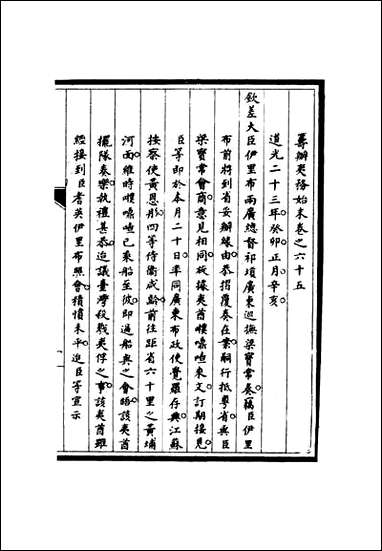 籌辦夷務始末卷之六十五
道光二十三年癸卯正月辛亥
欽差大臣伊里布兩廣總督祁𡎴廣東巡撫梁寶常奏竊臣伊里
布前將到省妥辦緣由恭摺覆奏在案嗣行抵粵省與臣
梁寶常會商意見相同故據夷酋㗶嚕喳來文訂期接見
臣等即於本月二十日率同廣東布政使覺羅存興江蘇
按察使黃恩彤四等侍衛咸齡前往距省六十里之黃埔
河面維時㗶嚕喳已乘船至彼即過船與之會晤該夷酋
擺隊奏樂執禮甚恭迨議臺灣殺戮夷俘之事該夷酋雖
經接到臣耆英伊里布照會積憤未平迨臣等宣示